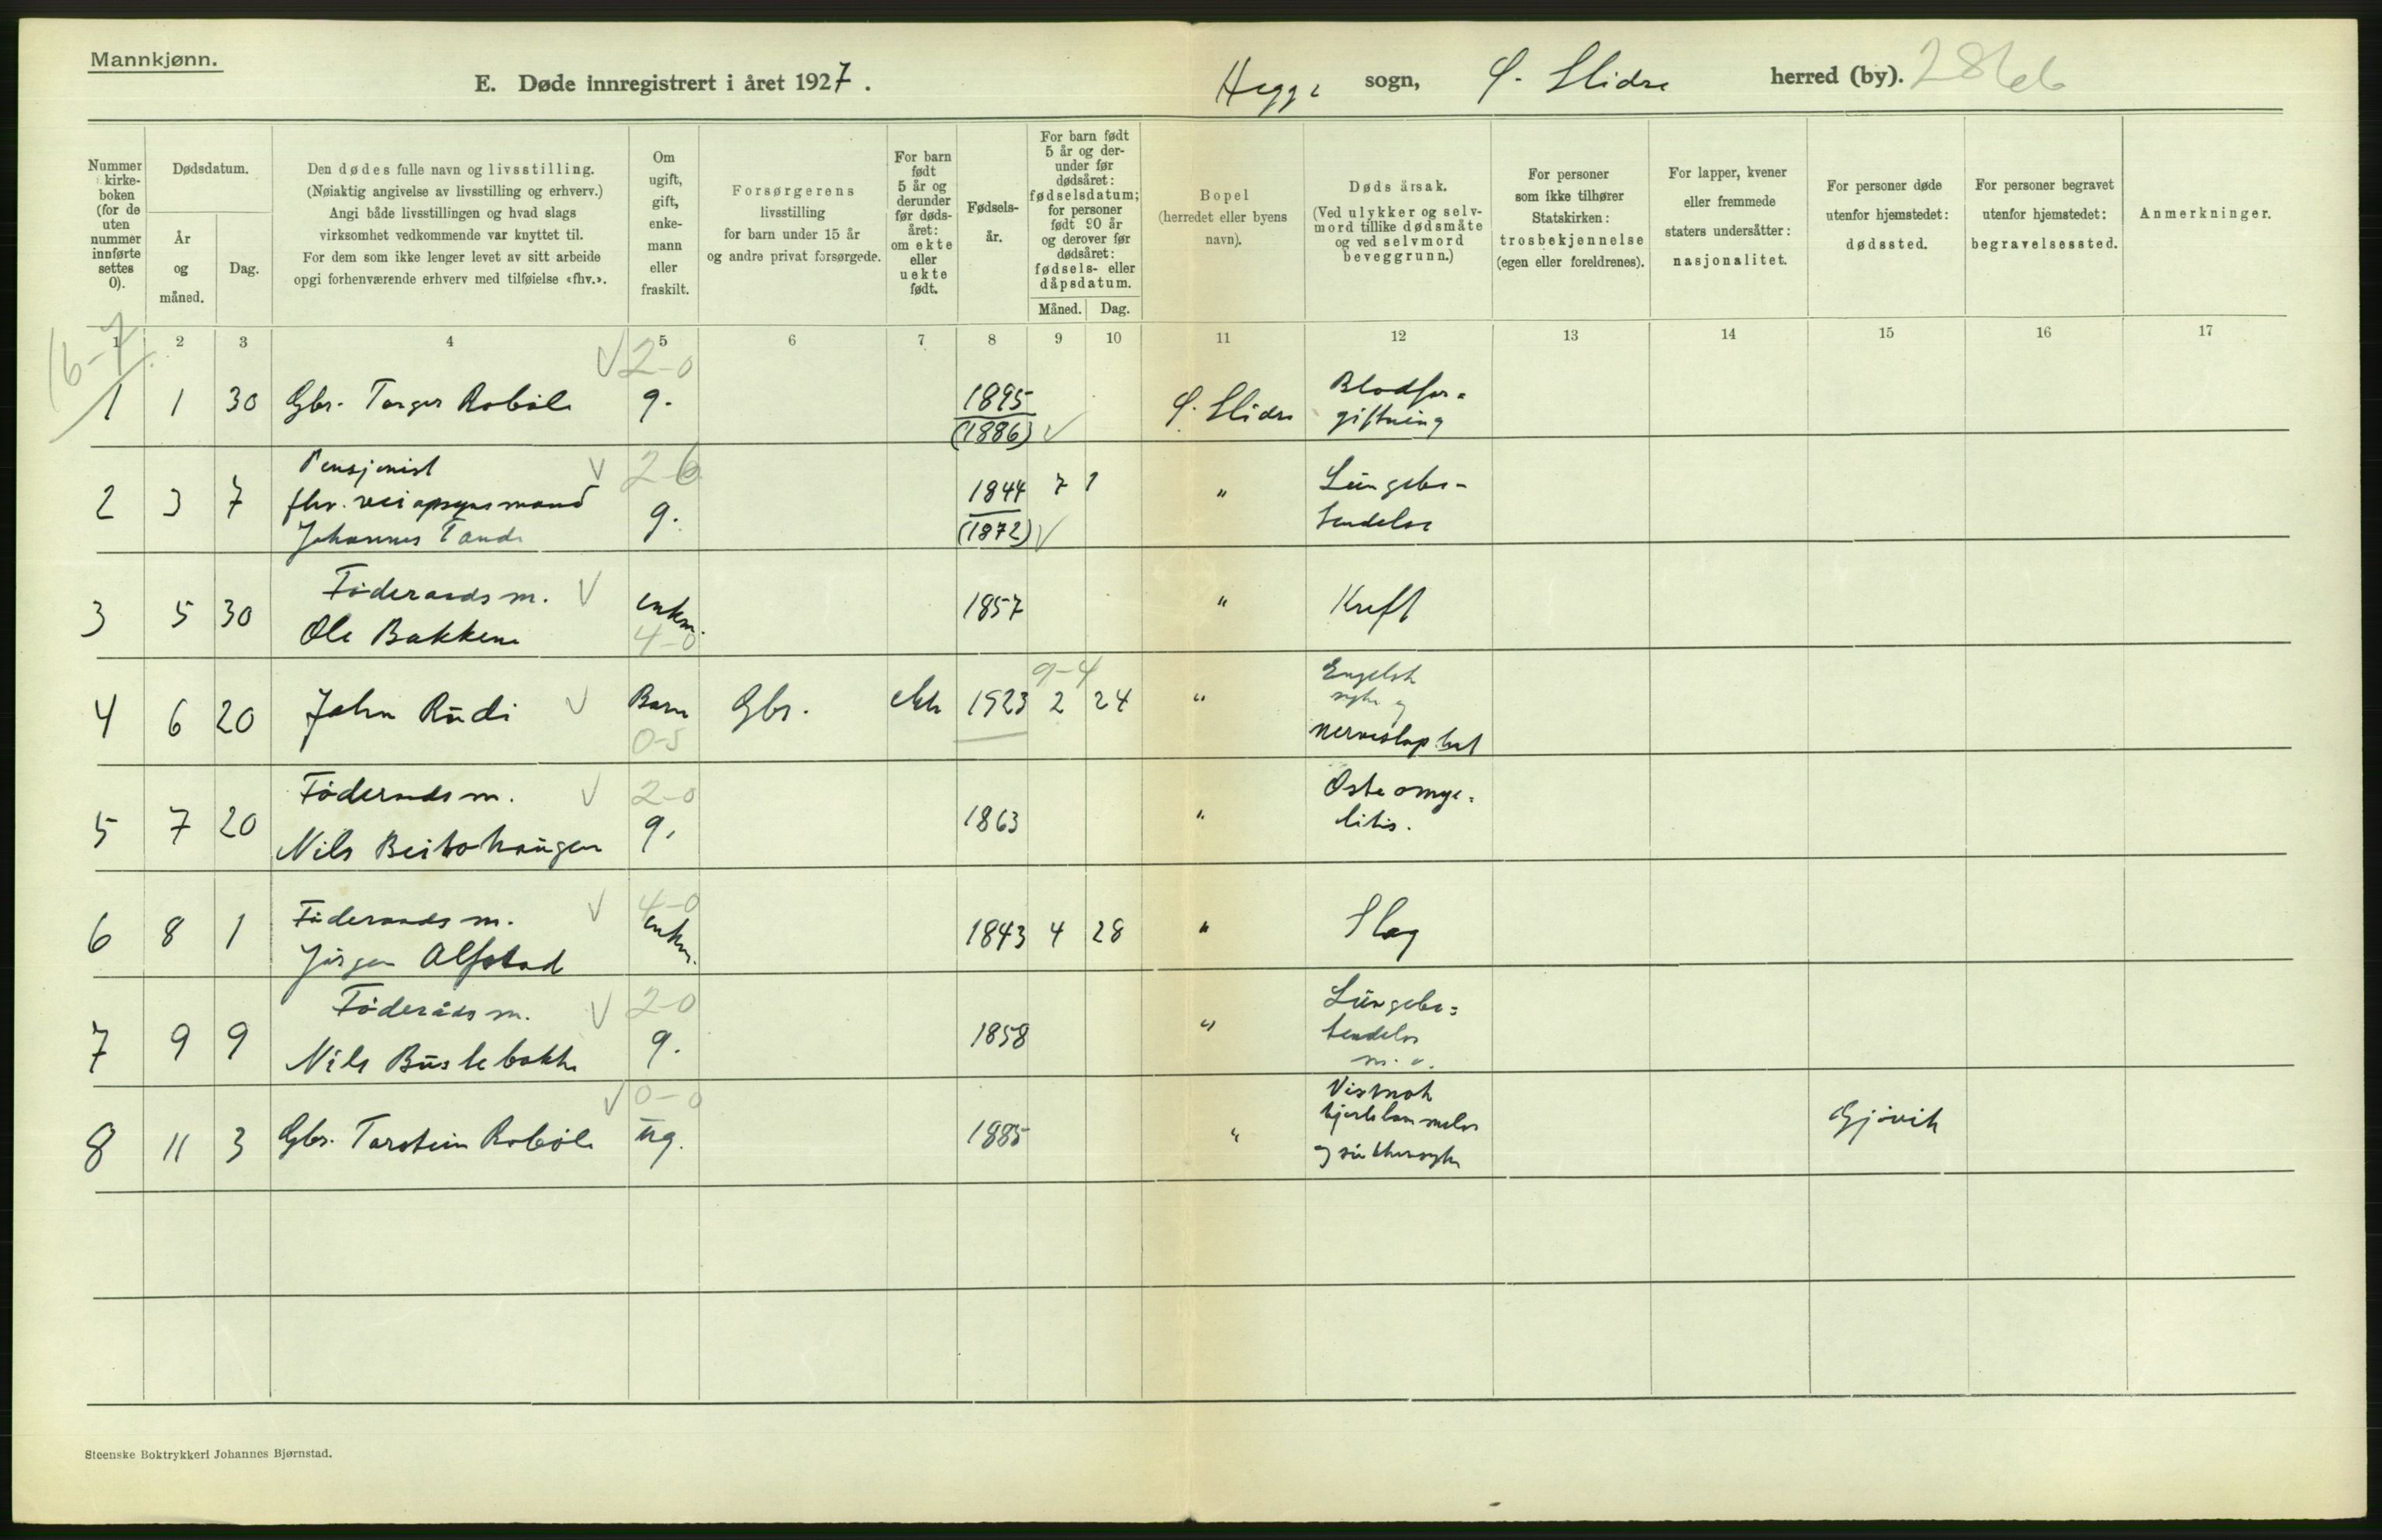 Mannkjønn.
E. Døde innregistrert i året 1927.
Hegge sogn, Ø. Slidre herred (by).
Nummer i kirke-boken (for de uten nummer innførte settes 0).
Dødsdatum.
År og måned.
Dag.
Den dødes fulle navn og livsstilling.
(Nøiaktig angivelse av livsstilling og erhverv.)
Angi både livsstillingen og hvad slags
virksomhet vedkommende var knyttet til.
For dem som ikke lenger levet av sitt arbeide
opgi forhenværende erhverv med tilføielse «fhv.».
Om ugift, gift, enke-mann eller fraskilt.
Forsørgerens
livsstilling
for barn under 15 år
og andre privat forsørgede.
For barn født 5 år og derunder før døds-året: om ekte eller uekte født.
Fødsels-år.
For barn født 5 år og der-under før dødsåret: fødselsdatum; for personer født 90 år og derover før dødsåret: fødsels- eller dåpsdatum.
Måned. Dag.
Bopel
(herredet eller byens
navn).
Dødsårsak.
(Ved ulykker og selv-
mord tillike dødsmåte
og ved selvmord
beveggrunn.)
For personer
som ikke tilhører
Statskirken:
trosbekjennelse
(egen eller foreldrenes).
For lapper, kvener
eller fremmede
staters undersåtter:
nasjonalitet.
For personer døde
utenfor hjemstedet:
dødssted.
For personer begravet
utenfor hjemstedet:
begravelsessted.
Anmerkninger.
1 2 3 4 5 6 7 8 9 10 11 12 13 14 15 16 17
16-7
√ 2-0
1 1 30 Gbr. Torger Robøle g. 1895 Ø. Slidre Blodfor=
(1886) √ giftning
Pensjonist √ 2-6
2 3 7 fhv. veiopsynsmand g. 1844 7 1 " Lungebe-
Johannes Tande (1872) √ tendelse
Föderaadsm. √
3 5 30 Ole Bakkene enkm. 1857 " Kreft
4-0
9-4
4 6 20 John Rudi √ Barn Gbr. ekte 1923 2 24 " Engelsk
syke og
0-5 nerveslaphet
Föderaadsm. √ 2-0
5 7 20 Nils Beitohaugen g. 1863 " Osteomye=
litis.
Föderaadsm. √ 4-0
6 8 1 Jörgen Alfstad enkm. 1843 4 28 " Slag
Föderådsm. √ 2-0
7 9 9 Nils Buslebakke g. 1858 " Lungebe=
tendelse
√ 0-0
8 11 3 Gbr. Torstein Robøle ug. 1885 " Gjøvik
hjertelammelse
og sukkersyke
Steenske Boktrykkeri Johannes Bjørnstad.